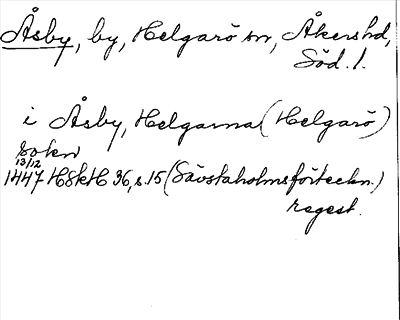 Åsby, by, Helgarö sn, Åkershd,
Söd. l.
i Åsby, Helgarna (Helgarö)
sokn
13/12
1447 HSkH 36, s. 15 (Sävstaholmsförteckn.)
regest.